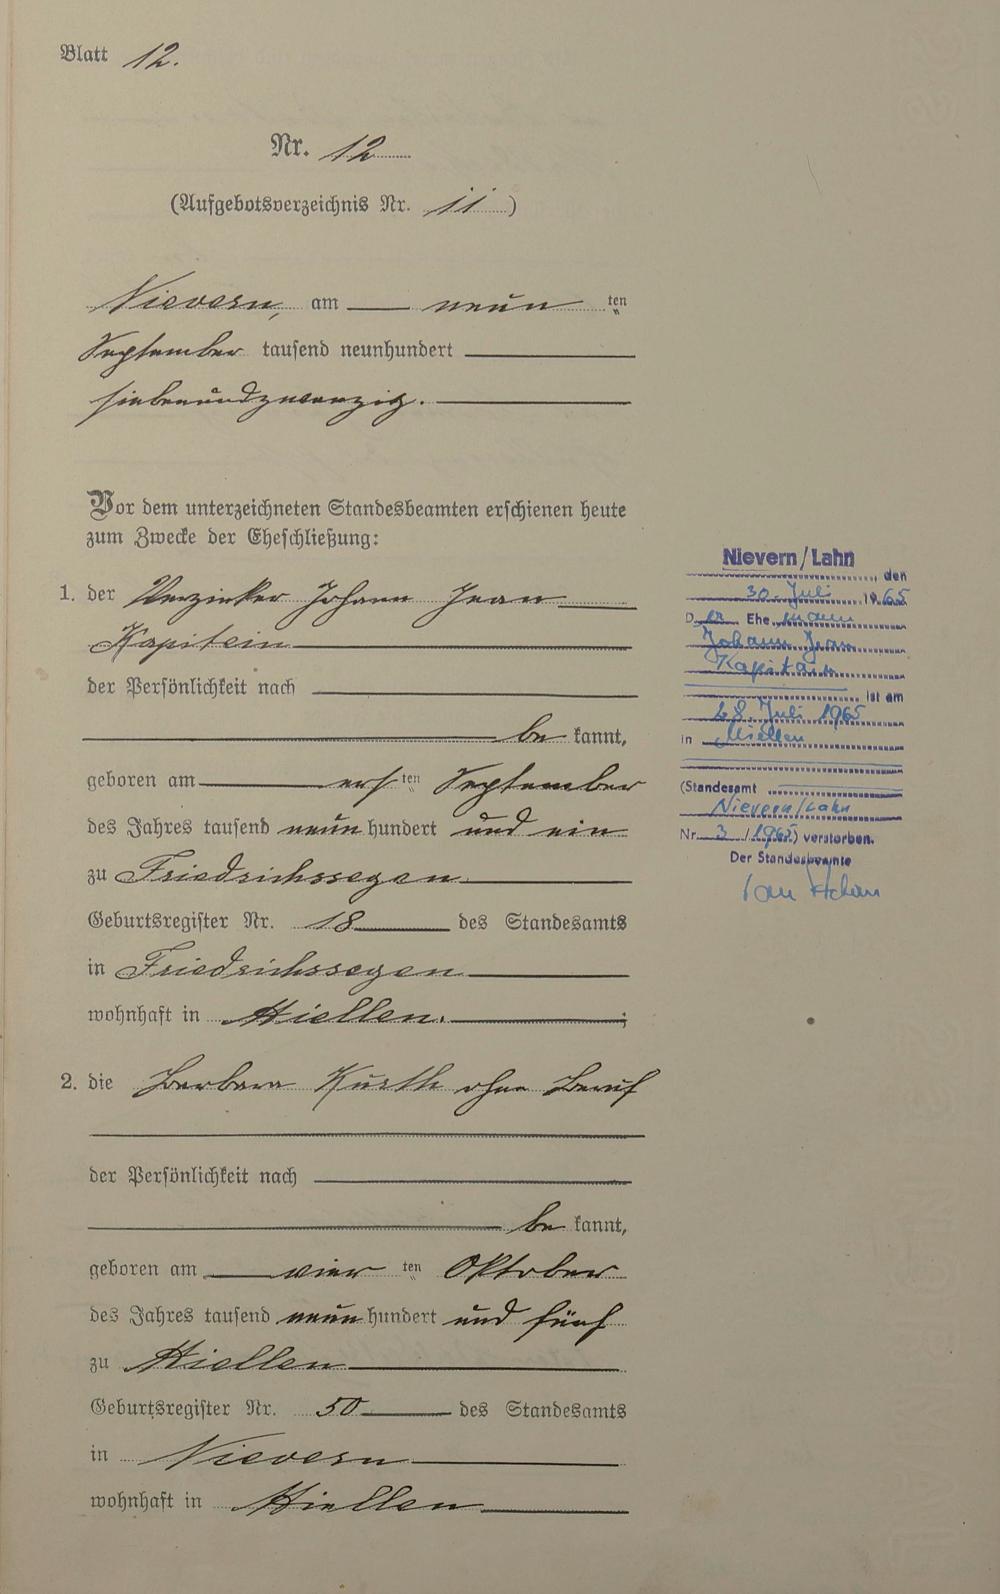 Blatt 12.
Nr. 12
(Aufgebotsverzeichnis Nr. 11)
Nievern, am neun ten
September tausend neunhundert
siebenundzwanzig.
Vor dem unterzeichneten Standesbeamten erschienen heute
zum Zwecke der Eheschließung:
1. der Verzinker Johann Jean
Kapitein
der Persönlichkeit nach
be kannt,
geboren am ersten September
des Jahres tausend neun hundert und ein
zu Friedrichssegen
Geburtsregister Nr. 18 des Standesamts
in Friedrichssegen
wohnhaft in Miellen. ;
2. die Barbara Kurth ohne Beruf
der Persönlichkeit nach
be kannt,
geboren am vier ten Oktober
des Jahres tausend neun hundert und fünf
zu Miellen
Geburtsregister Nr. 50 des Standesamts
in Nievern
wohnhaft in Miellen
Nievern/Lahn
, den
30. Juli 1965
Der Ehemann
Johann Jean
Kapitain
ist am
28. Juli 1965
in Miellen
(Standesamt
Nievern/Lahn
Nr. 3 / 1965) verstorben.
Der Standesbeamte